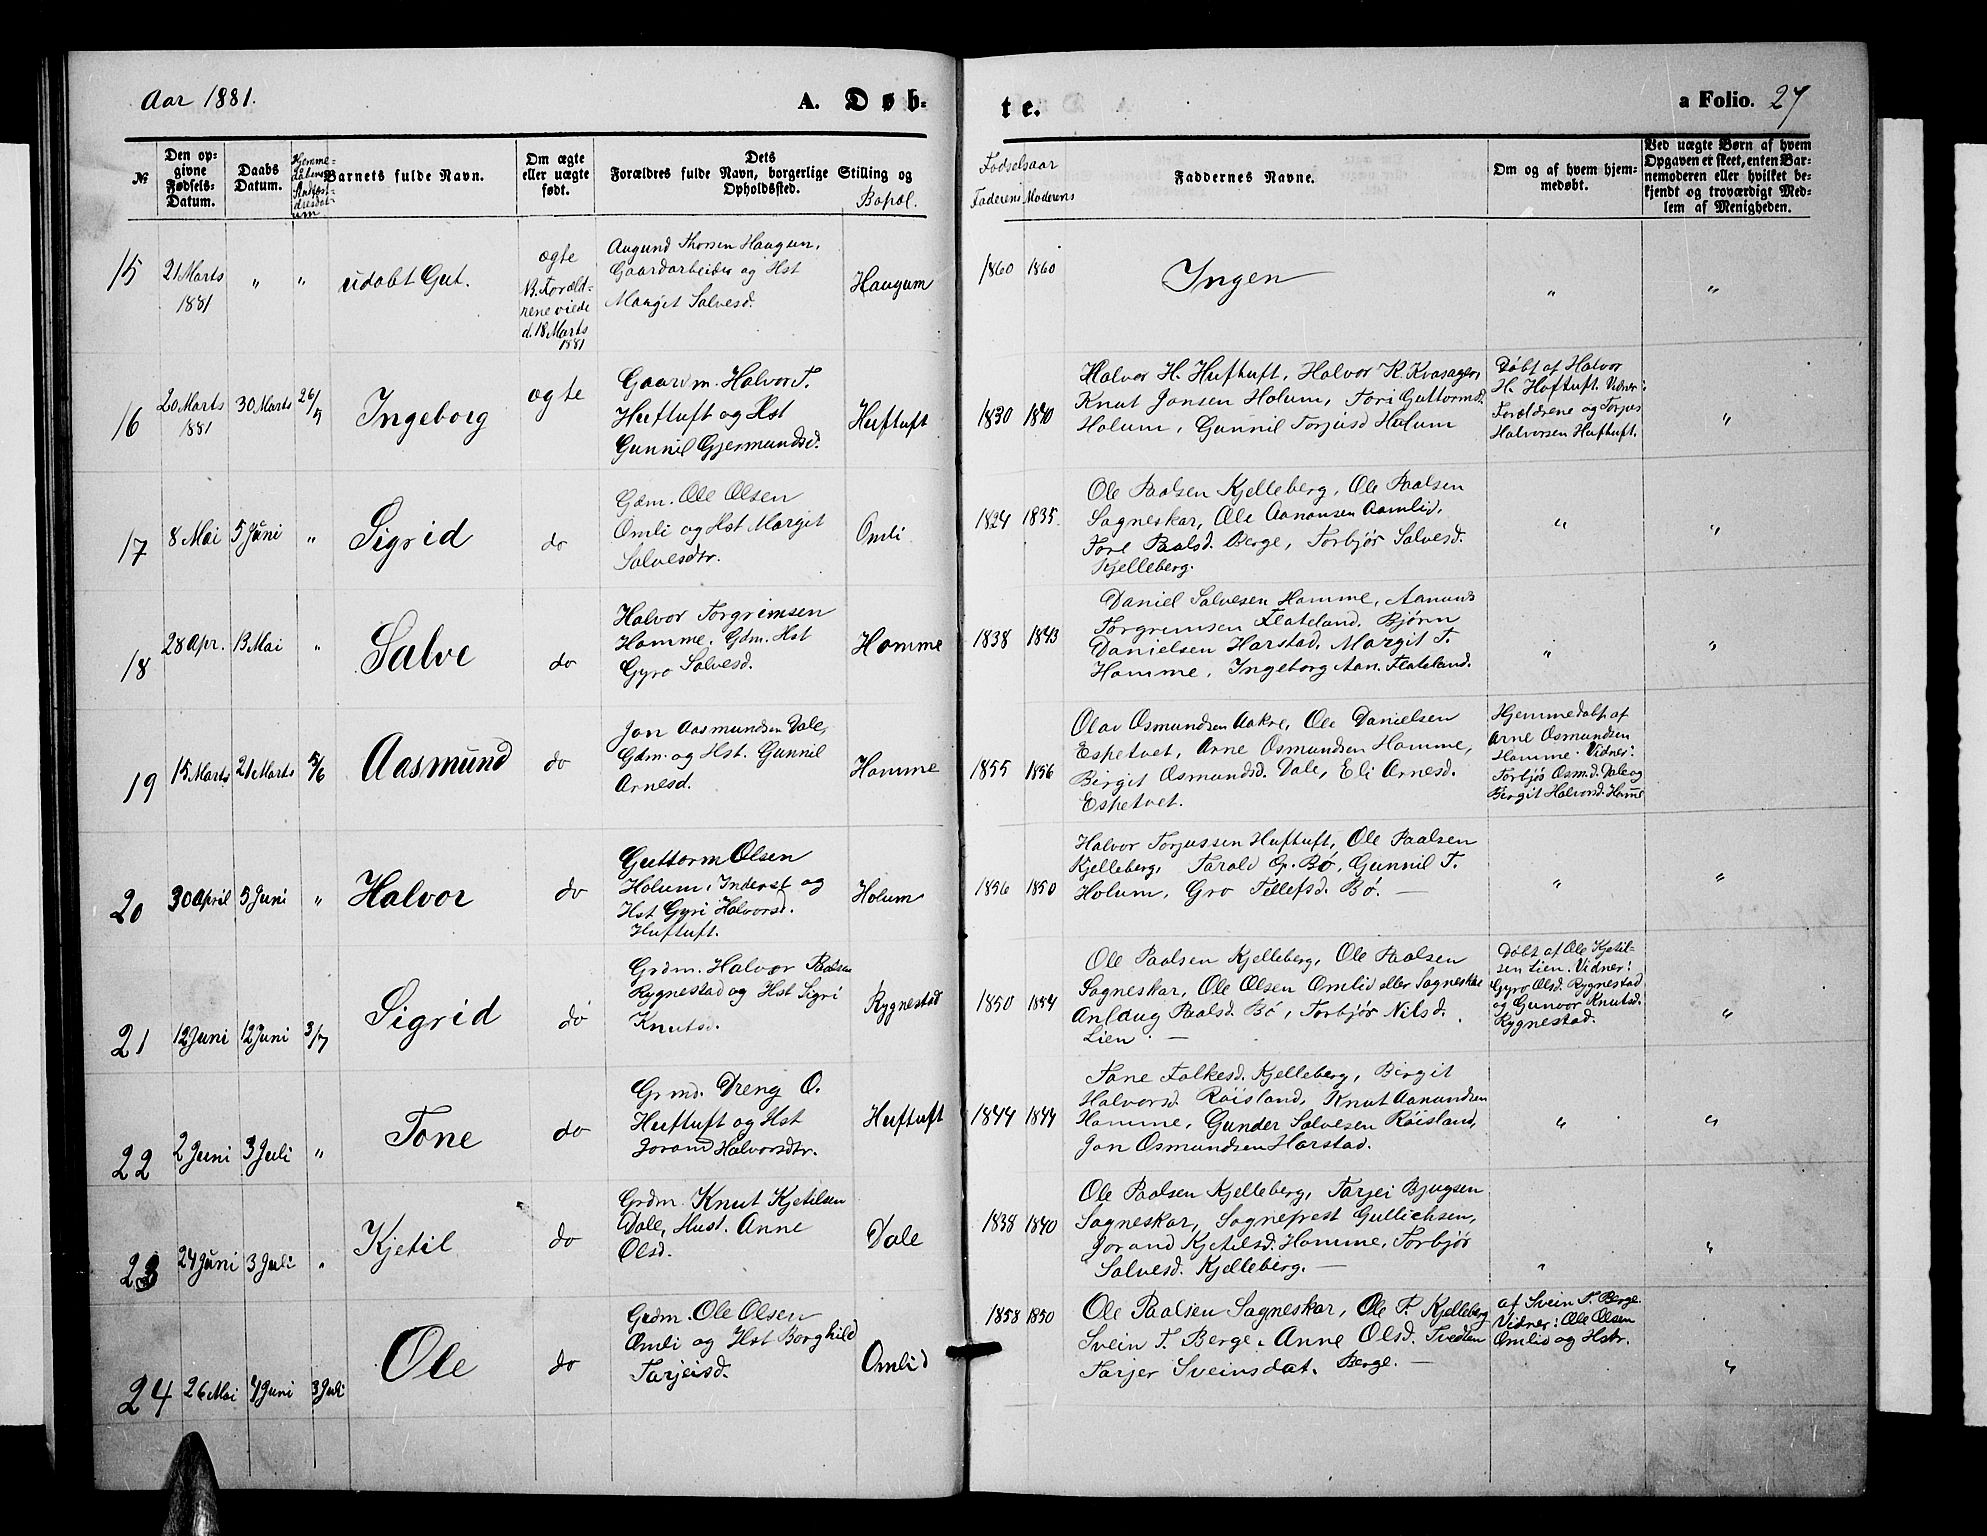 Aar 1881.
A. Døb-
te.
a Folio. 27
№
Den op-
givne
Fødsels-
Datum.
Daabs
Datum.
Barnets fulde Navn.
Om ægte
eller uægte
født.
Dets
Forældres fulde Navn, borgerlige Stilling og
Opholdssted.
Bopæl.
Fødselsaar
Faderens Moderens
Faddernes Navne.
Om og af hvem hjem-
medøbt.
Ved uægte Børn af hvem
Opgaven er skeet, enten Bar-
nemoderen eller hvilket be-
kjendt og troværdigt Med-
lem af Menigheden.
15
21 Marts
1881
"
"
udøbt Gut.
ægte
B. Foræld-
rene viede
d. 18 Marts
1881
Augund Thorsen Haugum,
Gaardarbeider og Hst
Margit Salvesd.
Haugum
1860 1860
Ingen
"
"
16
20 Marts
1881
30 Marts
26/5
Ingeborg
ægte
Gaardm. Halvor T.
Huftuft og Hst
Gunnil Gjermundsd.
Huftuft
1830 1840
Halvor H. Huftuft, Halvor K. Kvasager,
Knut Jonsen Holum, Tori Guttormsd.
Holum, Gunnil Torjusd Holum
Døbt af Halvor
H. Huftuft. Vidner:
Forældrene og Torjus
Halvorsen Huftuft.
"
17
8 Mai
5 Juni
"
Sigrid
do
Gdm. Ole Olsen
Omli og Hst Margit
Salvesdtr.
Omli
1824 1835.
Ole Paalsen Kjelleberg, Ole Paalsen
Sagneskar, Ole Aanansen Aamlid,
Tore Paalsd. Berge, Torbjør Salvesd.
Kjelleberg.
"
"
18
28 Apr.
13 Mai
"
Salve
do
Halvor Torgrimsen
Homme, Gdm. Hst
Gyro Salvesd.
Homme
1838 1843
Daniel Salvesen Homme, Aanund
Torgrimsen Flateland. Bjørn
Danielsen Harstad. Margit T.
Homme, Ingeborg Aan. Flateland.
"
"
19
15 Marts
21 Marts
5/6
Aasmund
do
Jon Aasmundsen Dale,
Gdm. og Hst. Gunnil
Arnesd.
Homme
1855 1856
Olav Osmundsen Aakre, Ole Danielsen
Espetvet, Arne Osmundsen Homme,
Birgit Osmundsd. Dale, Eli Arnesd.
Espetvet.
Hjemmedøbt af
Arne Osmundsen
Homme. Vidner:
Torbjør Osm.d. Dale og
Birgit Halvorsd. Home
20
30 April
5 Juni
"
Halvor
do
Guttorm Olsen
Holum, Inderst og
Hst Gyri Halvorsd.
Huftuft.
Holum
1856 1850
Halvor Torjussen Huftuft, Ole Paalsen
Kjelleberg, Tarald O. Bø, Gunnil T.
Holum, Gro Tellefsd. Bø. —
"
"
21
12 Juni
12 Juni
3/7
Sigrid
do
Grdm. Halvor Paalsen
Rygnestad og Hst Sigri
Knutsd.
Rygnestad
1850 1854
Ole Paalsen Kjelleberg, Ole Paalsen
Sagneskar, Ole Olsen Omlid eller Sagneskar
Anlaug Paalsd. Bø, Torbjør Nilsd.
Lien. —
Døbt af Ole Kjetil-
sen Lien. Vidner:
Gyro Olsd. Rygnestad
og Gunvor Knutsd.
Rygnestad.
"
22
2 Juni
3 Juli
"
Tone
do
Grmd. Dreng O.
Huftuft og Hst
Jorand Halvorsdtr.
Huftuft
1844 1844
Tone Folkesd. Kjelleberg, Birgit
Halvorsd. Røisland, Knut Aanundsen
Homme, Gunder Salvesen Røisland,
Jon Osmundsen Harstad.
"
"
23
24 Juni
3 Juli
"
Kjetil
do
Grdm. Knut Kjetilsen
Dale, Hust. Anne
Olsd.
Dale
1838 1840
Ole Paalsen Kjelleberg, Tarjei Bjugsen
Sagneskar, Sogneprest Gullichsen,
Jorand Kjetilsd. Homme, Torbjør
Salvesd. Kjelleberg. —
"
"
24
26 Mai
4 Juni
3 Juli
Ole
do
Grdm. Ole Olsen
Omli og Hst Borghild
Tarjeisd.
Omlid
1858 1850
Ole Paalsen Sagneskar, Ole P. Kjelleberg
Svein T. Berge, Anne Olsd. Tvedten
Tarjer Sveinsdat. Berge. —
af Svein T. Berge.
Vidner: Ole Olsen
Omlid og Hstr.
"